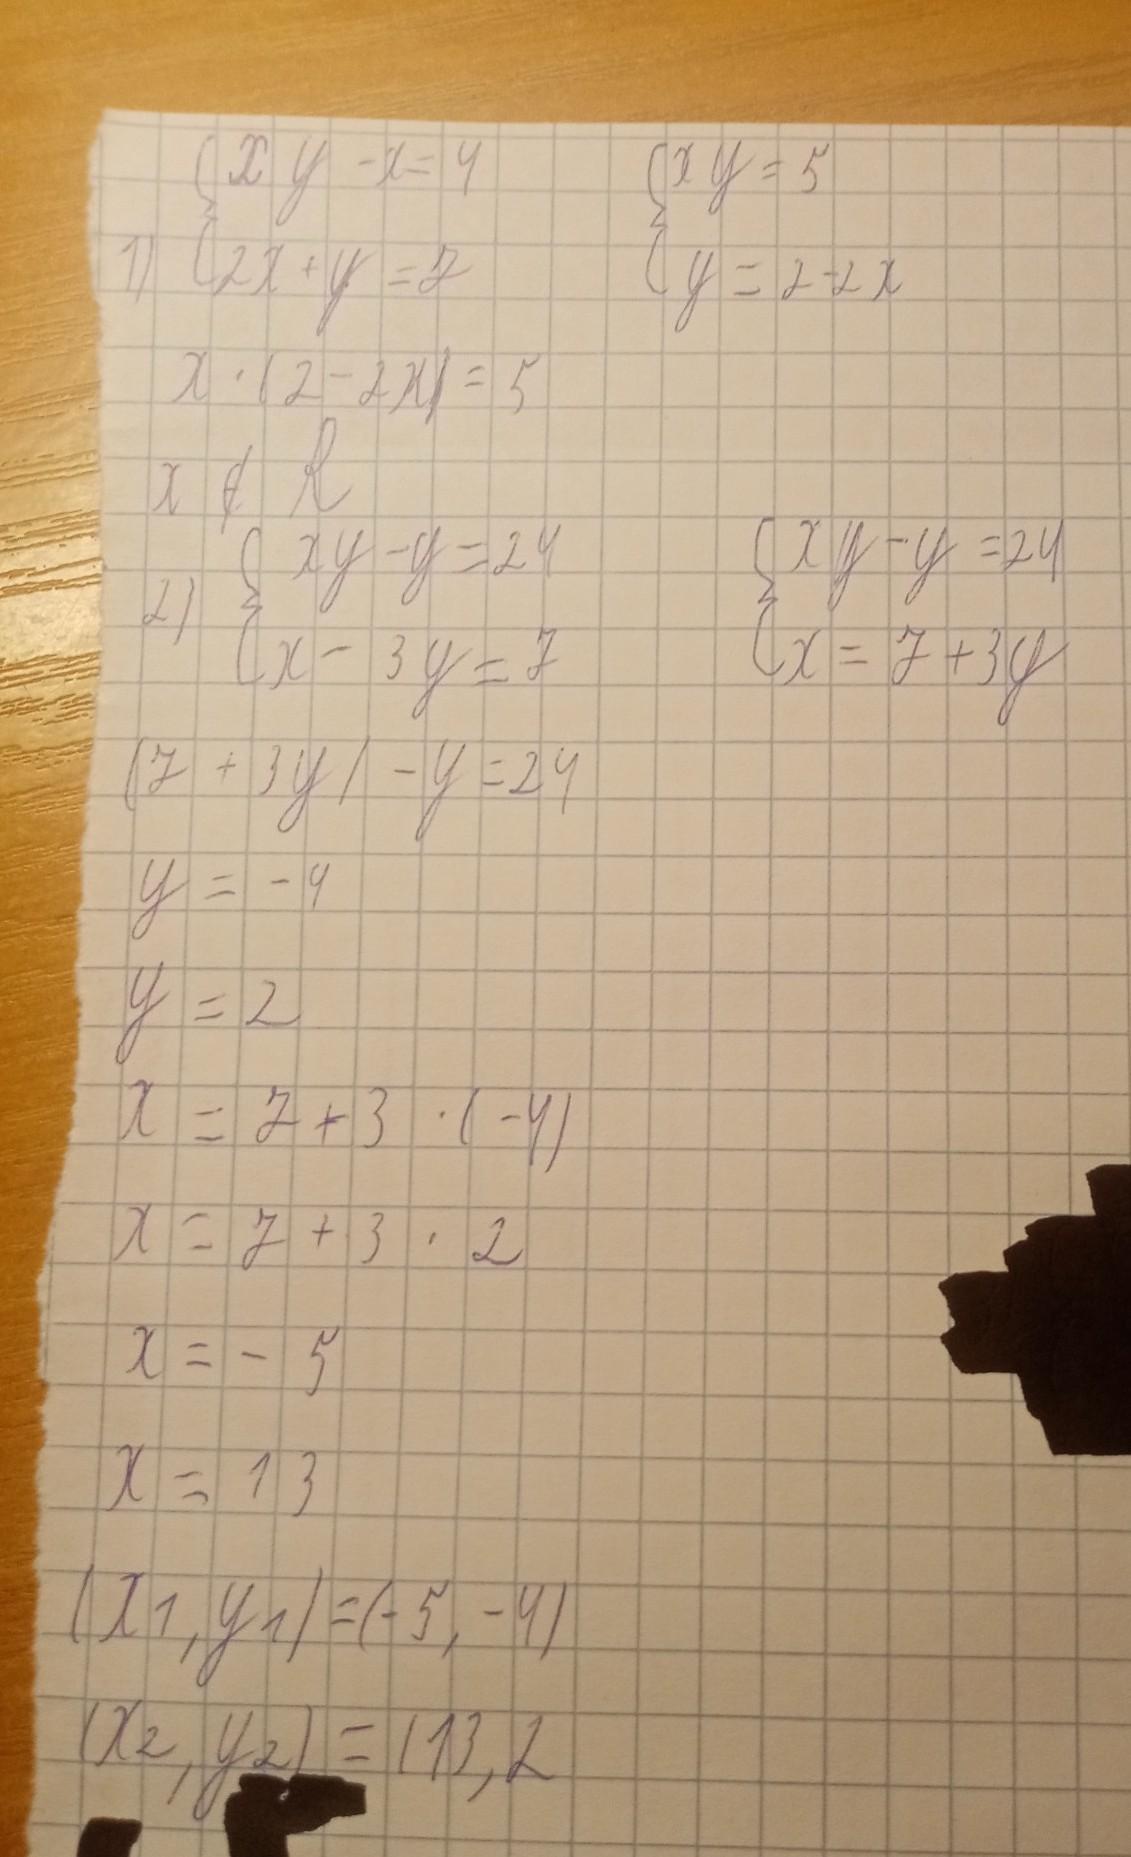 xy - x = 4   xy = 5
1) 2x + y = 7   y = 2 - 2x
x · (2 - 2x) = 5
x ∉ R
xy - y = 24   xy - y = 24
2) x - 3y = 7   x = 7 + 3y
(7 + 3y) - y = 24
y = -4
y = 2
x = 7 + 3 · (-4)
x = 7 + 3 · 2
x = - 5
x = 13
(x1, y1) = (-5, -4)
(x2, y2) = (13, 2